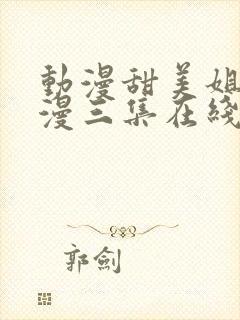 動漫甜美姐
漫三集在綫
郭劍